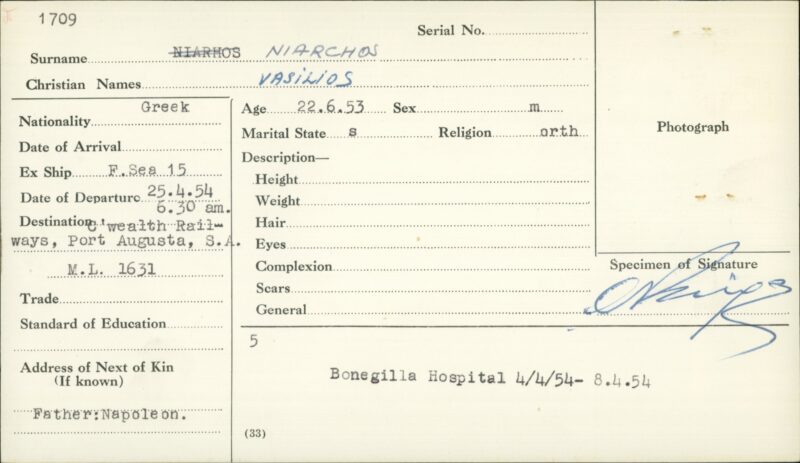 1709
Serial No.
Surname NIARHOS NIARCHOS
Christian Names VASILIOS
Nationality Greek
Date of Arrival
Ex Ship F.Sea 15
Date of Departure 25.4.54
6.30 am.
Destination C'wealth Rail-
ways, Port Augusta, S.A.
M.L. 1631
Trade
Standard of Education
Address of Next of Kin
(If known)
Father:Napoleon.
Age 22.6.53 Sex m
Marital State s Religion orth
Description—
Height
Weight
Hair
Eyes
Complexion
Scars
General
Photograph
Specimen of Signature
5
Bonegilla Hospital 4/4/54- 8.4.54
(33)